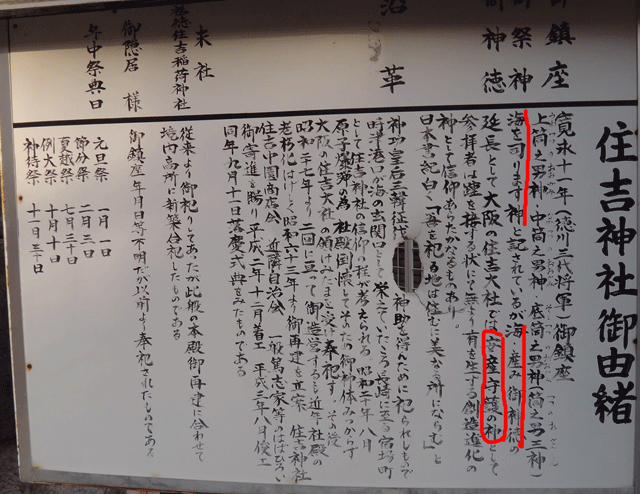 住吉神社御由緒
御鎮座
寛永十一年(徳川三代将軍)御鎮座
御祭神
上筒之男神 中筒之男神 底筒之男神(筒之男三神)
御神徳
海を司ります神と記されているが海・産み御神徳の
延長として大阪の住吉大社では安産守護の神として
参拝者は踵を接する状にて無より有を生ずる創造進化の
神として信仰あらたかなものあり。
日本書紀曰く「吾を祀る地は住むに美なる所にならむ」と
沿革
神功皇后三韓征伐 神助を得んために祀られしもので
時津港口が海の玄関口として栄えていたころ長崎に至る宿場町
として住吉神社の信仰の程が考えられる 昭和二十年八月
原子爆弾の為 社殿倒懐して その后 御神体みつからず
大阪の住吉大社の 御みたまを 奉祀す その后
昭和二十七年より二回に亘って御造営するも近年社殿の
老朽化はげしく昭和六十三年より御再建を立案 住吉神社
住吉中園商店会 近隣自治会 一般篤志家等の
御寄進を賜り 平成二年十二月着工 平成三年八月竣工
同年九月十一日落慶式典をみたものである
末社
福徳住吉稲荷神社
従来より御祀りしてあったが此般の本殿御再建に合わせて
境内高所に新築合祀したものである
御隠居様
御鎮座年月日等不明だが以前より奉祀されたものである
年中祭典日
元旦祭 一月一日
節分祭 二月三日
夏越祭 七月三十日
例大祭 十月十日
神待祭 十一月三十日